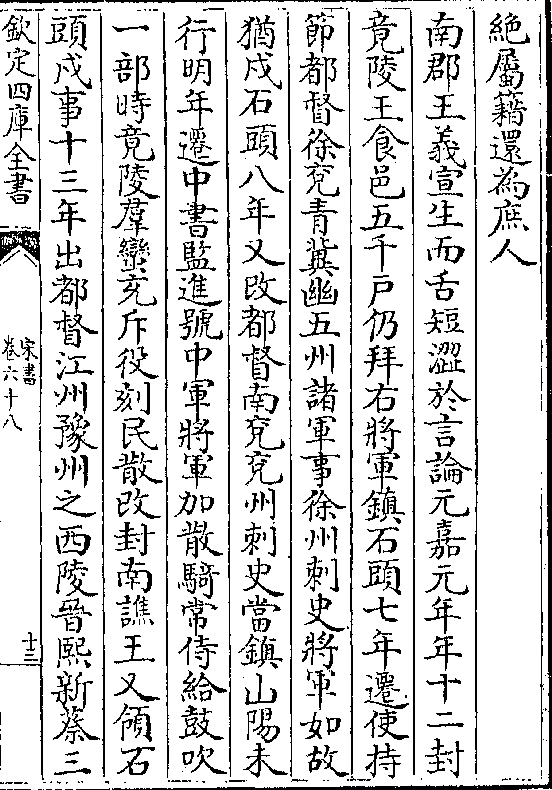 絶屬籍還為庶人
南郡王義宣生而舌短澀於言論元嘉元年年十二封
竟陵王食邑五千户仍拜右將軍鎮石頭七年遷使持
節都督徐兖青冀幽五州諸軍事徐州刺史將軍如故
猶戍石頭八年又改都督南兖兖州刺史當鎮山陽未
行明年遷中書監進號中軍將軍加散騎常侍給鼓吹
一部時竟陵羣蠻充斥役刻民散改封南譙王又領石
頭戍事十三年出都督江州豫州之西陵晉熙新蔡三
欽定四庫全書
宋書
卷六十八
十三